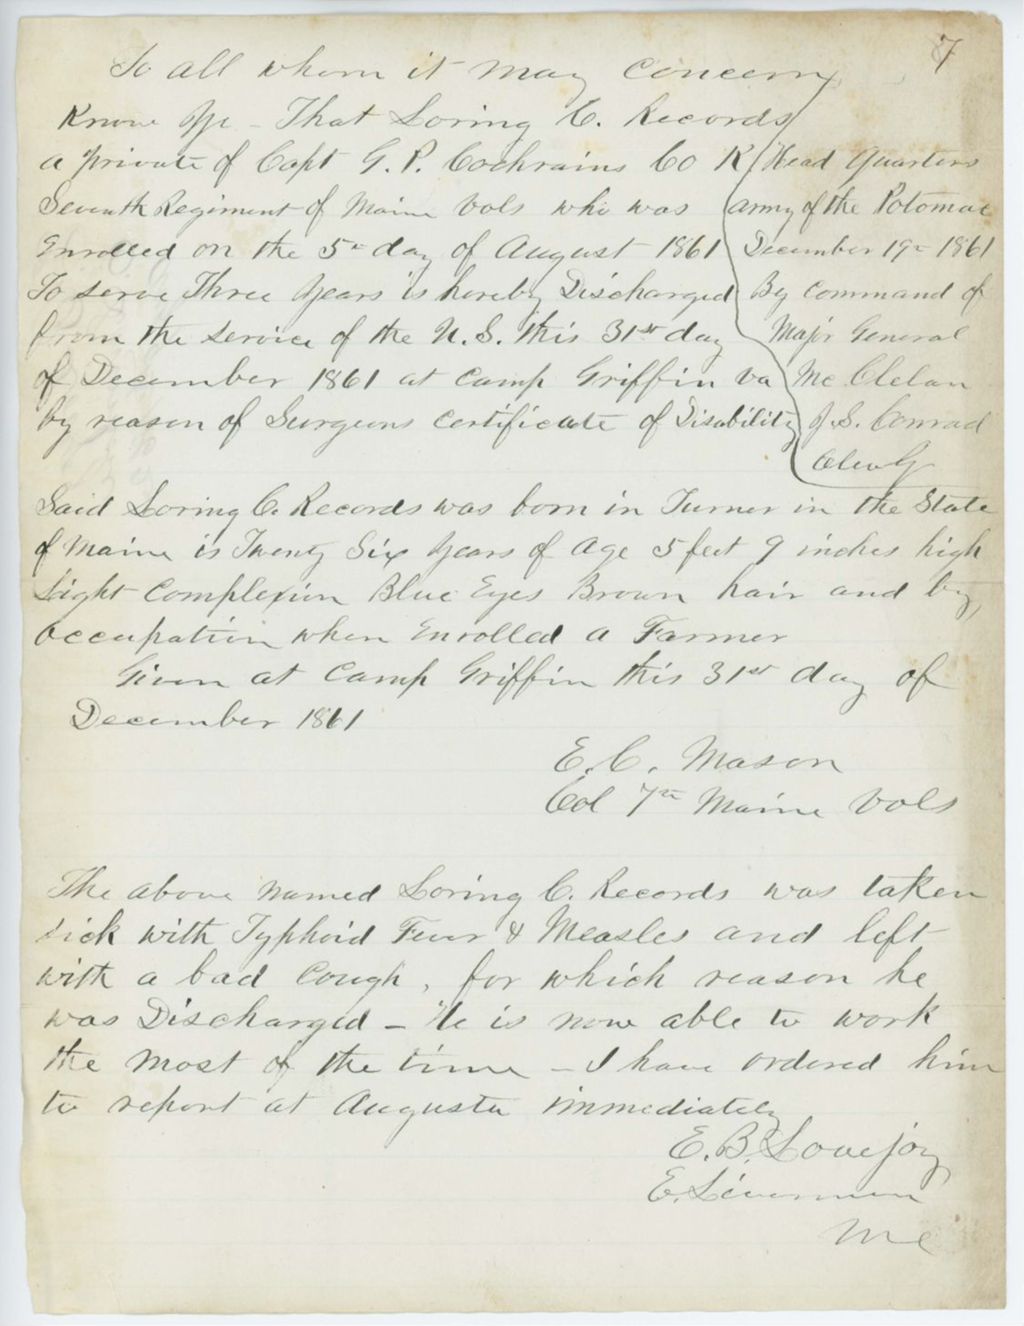 7
To all whom it may concern
Know Ye - That Loring C. Records
a private of Capt G. P. Cochrains Co K
Seventh Regiment of Maine Vols who was
Enrolled on the 5th day of August 1861
To serve Three Years is hereby Discharged
from the service of the U.S. this 31st day
of December 1861 at Camp Griffin Va
by reason of Surgeons Certificate of Disability
Head Quarters
Army of the Potomac
December 19th 1861
By Command of
Major General
Mc Clelan
J. S. Conrad
Said Loring C. Records was born in Turner in the State
of Maine is Twenty Six Years of Age 5 feet 9 inches high
Light Complexion Blue Eyes Brown hair and by
occupation when Enrolled a Farmer
Given at Camp Griffin this 31st day of
December 1861
E. C. Mason
Col 7th Maine Vols
The above named Loring C. Records was taken
sick with Typhoid Fever & Measles and left
with a bad Cough, for which reason he
was Discharged - He is now able to work
the most of the time - I have ordered him
to report at Augusta immediately
E. B. Lovejoy
E. Livermore
Me